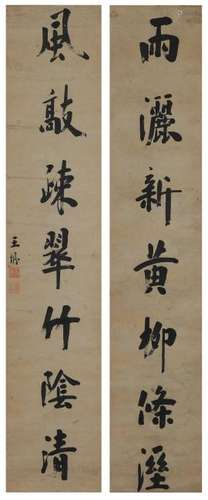 雨灑新黃柳條溼
風敲疎翠竹陰清
王